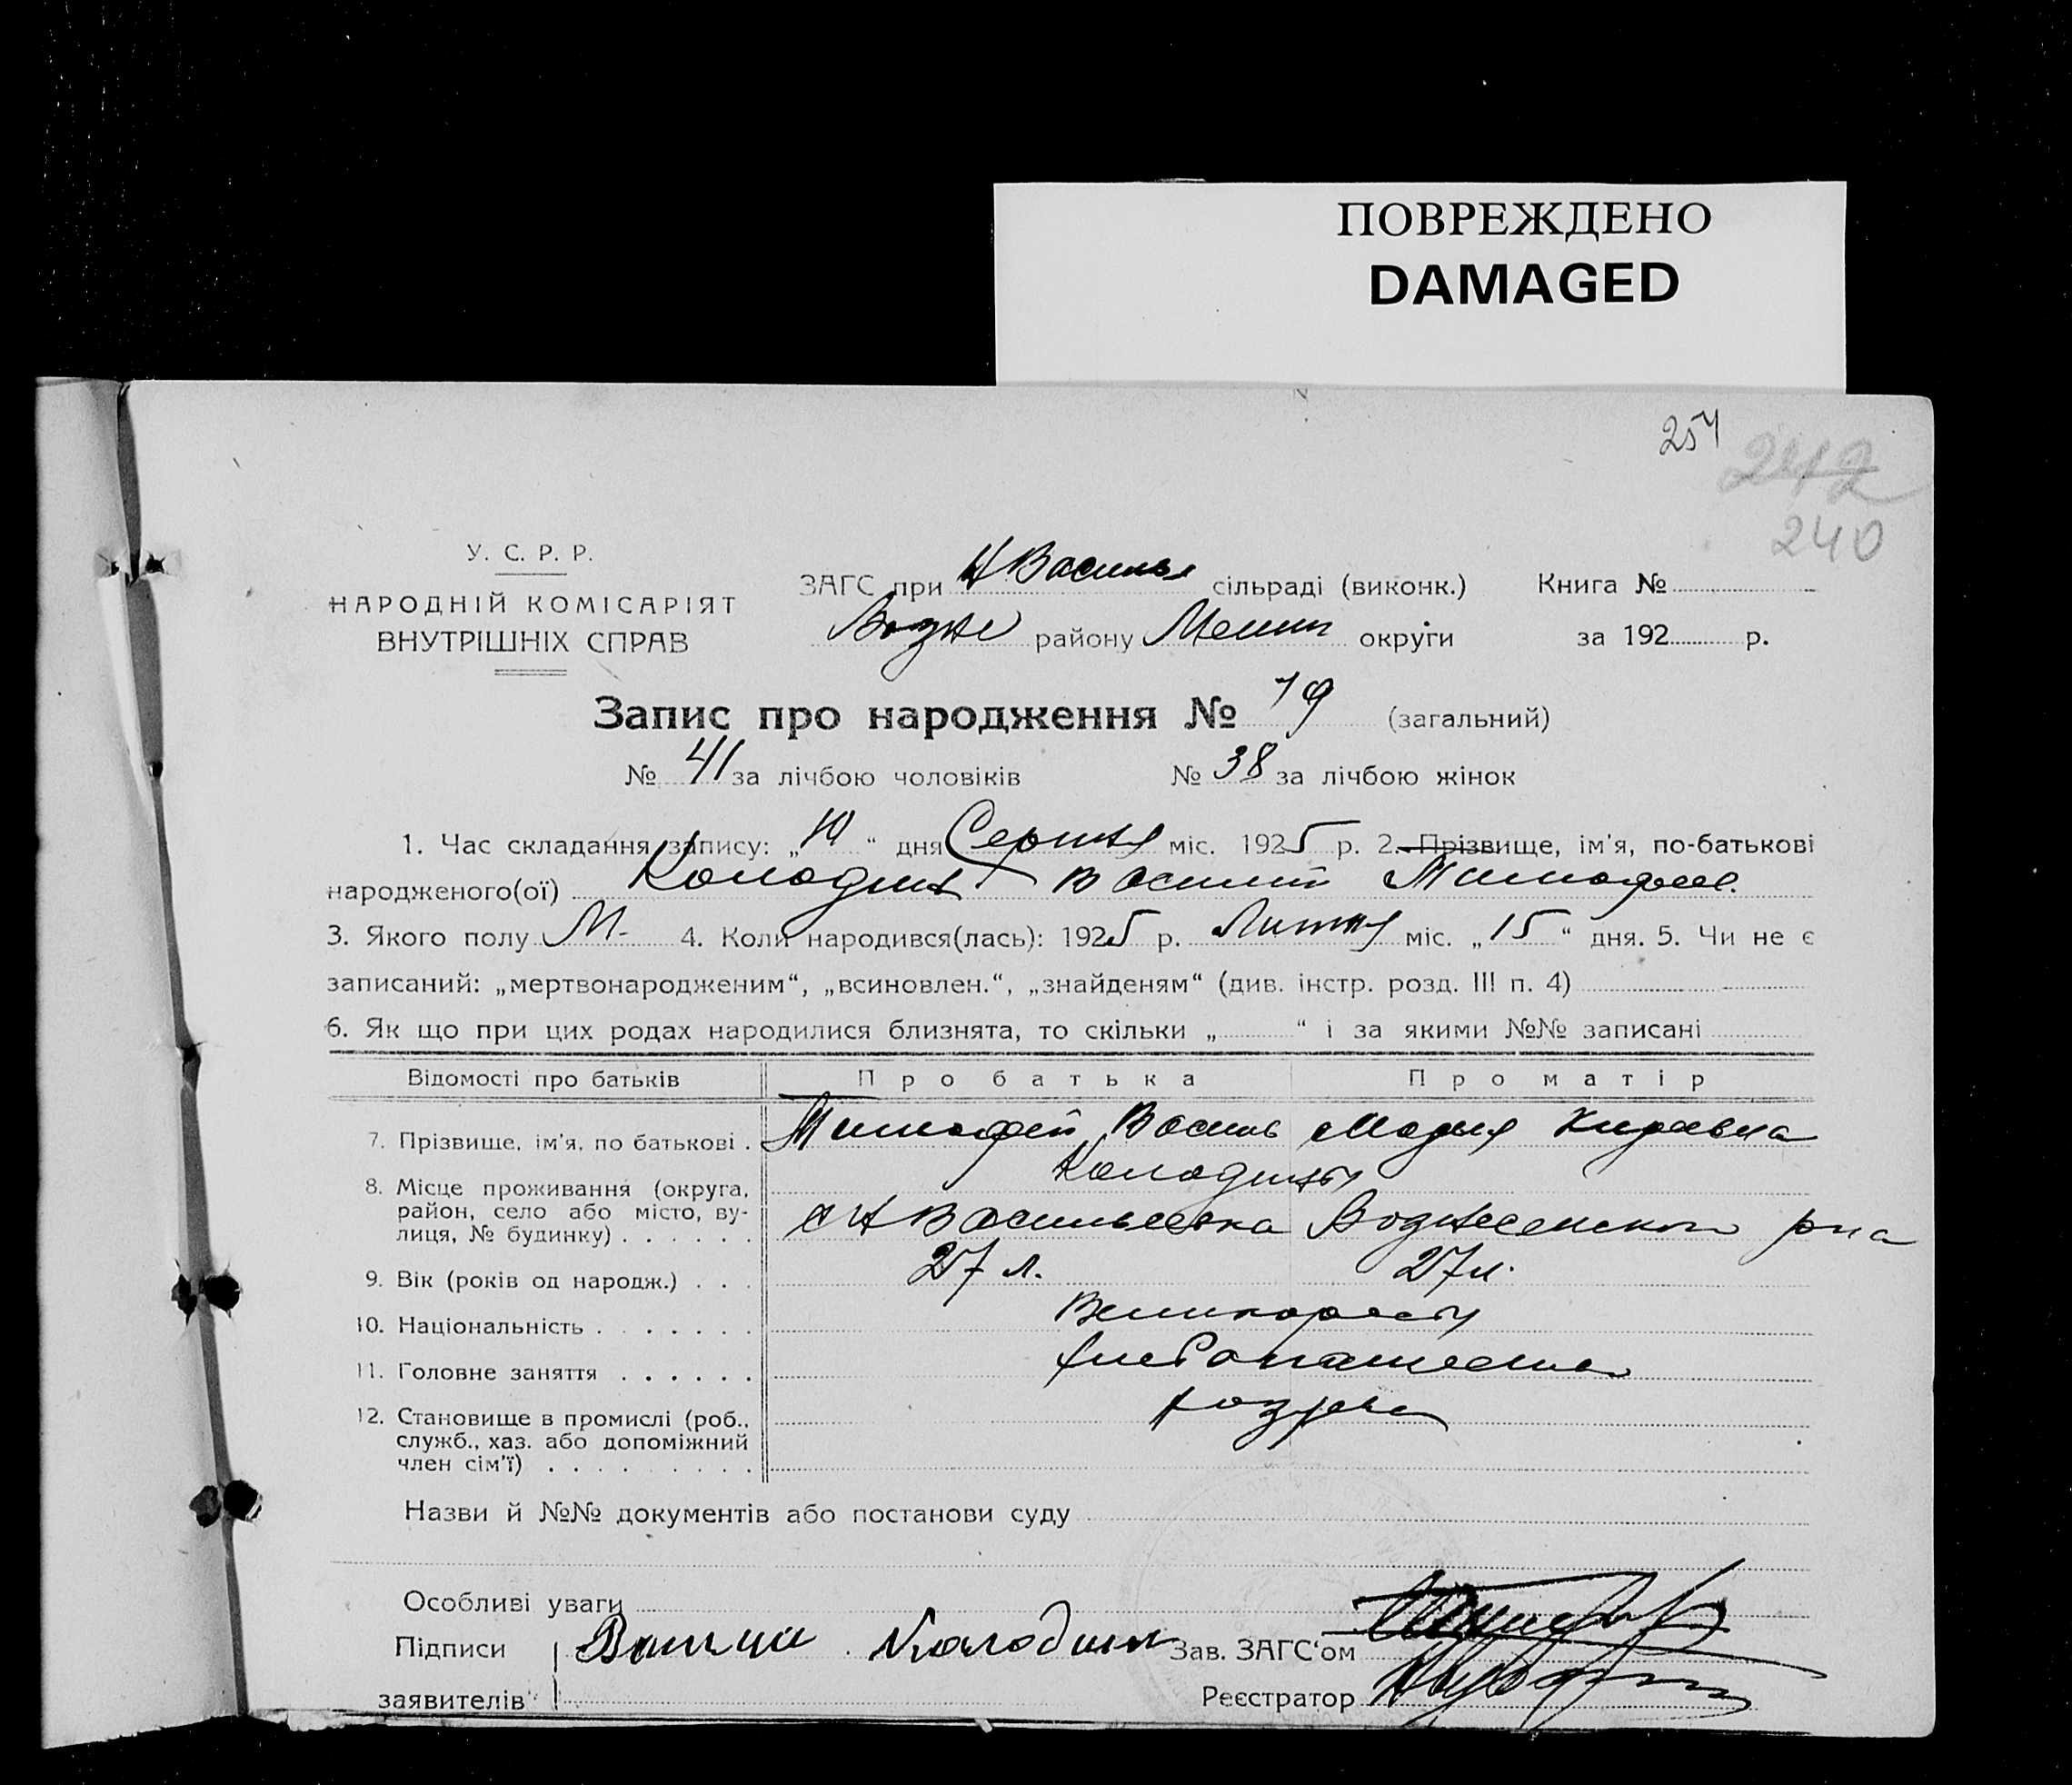 ПОВРЕЖДЕНО
DAMAGED
254
242
240
У. С. Р. Р.
НАРОДНІЙ КОМІСАРІЯТ
ВНУТРІШНІХ СПРАВ
ЗАГС при Н Василь сільраді (виконк.) Книга №
Возне району Мелит округи за 192 р.
Запис про народження № 79 (загальний)
№ 41 за лічбою чоловіків № 38 за лічбою жінок
1. Час складання запису: „10“ дня Серпня міс. 1925 р. 2. Прізвище, ім'я, по-батькові
народженого(ої) Колодин Василий Тимофее.
3. Якого полу М. 4. Коли народився(лась): 1925 р. Липня міс. „15“ дня. 5. Чи не є
записаний: „мертвонародженим“, „всиновлен.“, „знайденям“ (див. інстр. розд. III п. 4)
6. Як що при цих родах народилися близнята, то скільки „ “ і за якими №№ записані
Відомості про батьків Про батька Про матір
7. Прізвище, ім'я, по батькові . Тимофей Василь Мария Кировна
Колодины
8. Місце проживання (округа,
район, село або місто, ву-
лиця, № будинку) . . . . . . с Н Васильевка Вознесенского рна
9. Вік (років од народж.) . . . 27 л. 27 л.
10. Національність . . . . . . . Великороссы
11. Головне заняття . . . . . . Хлебопашество
12. Становище в промислі (роб.,
служб., хаз. або допоміжний
член сім'ї) . . . . . . . . .
Назви й №№ документів або постанови суду
Особливі уваги
Підписи Колодин Зав. ЗАГС'ом
заявителів Реєстратор